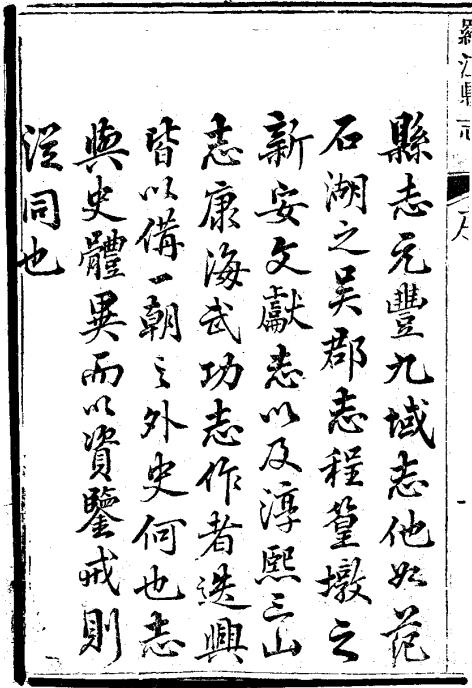 羅江縣志
縣志元豐九域志他如范
石湖之吴郡志程篁墩之
新安文獻志以及淳熙三山
志康海武功志作者迭興
皆以備一朝之外史何也志
與史體異而以資鑒戒則
從同也